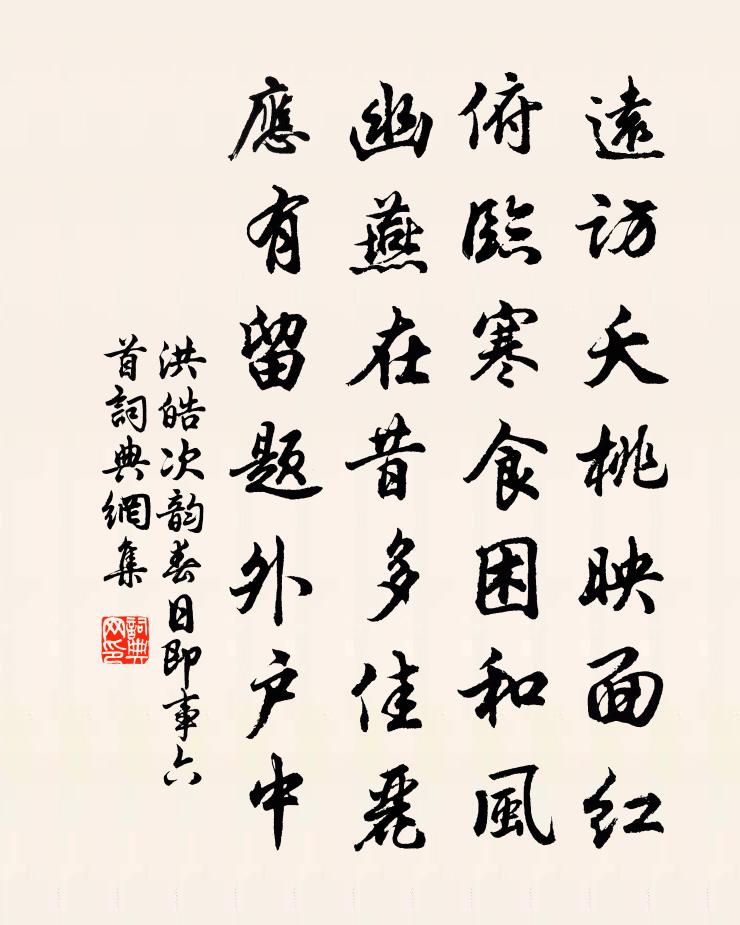 遠訪夭桃映面紅
俯臨寒食困和風
幽燕在昔多佳麗
應有留題外户中
洪皓次韵春日即事六
首詞典網集
詞典
网印